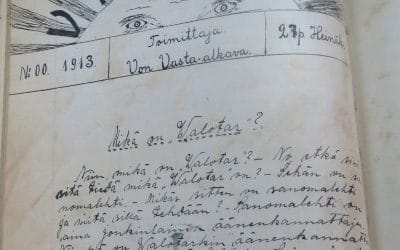 No: 00. 1913.
Toimittaja
Von Vasta-alkava.
27p Heinäk
Mikä on „Walotar"?
Niin mikä on „Walotar"? - No etkö
sitä tiedä mikä „Walotar" on? - Sehän on
nomalehti. - Mikä sitten on sanomalehti
ja mitä sillä tehdään? - Sanomalehti on
aina jonkinlainen äänenkannattaja
on Walotarkin äänenkannat